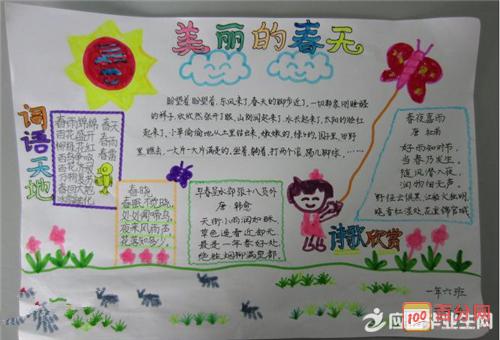 美丽的春天
盼望着,盼望着,东风来了,春天的脚步近了,一切都象刚睡醒
的样子,欣欣然张开了眼。山朗润起来了,水长起来了,太阳的脸红
起来了。小草偷偷地从土里钻出来,嫩嫩的,绿绿的。园里,田野
里,瞧去,一大片一大片满是的。坐着,躺着,打两个滚,踢几脚球……
词语天地
春雨绵绵 春天
百花盛开 春雨
柳绿花红 春雷
百鸟争鸣
百花齐放
万紫千红
春回大地
春晓
春眠不觉晓,
处处闻啼鸟。
夜来风雨声,
花落知多少。
早春呈水部张十八员外
唐 韩愈
天街小雨润如酥,
草色遥看近却无。
最是一年春好处,
绝胜烟柳满皇都。
春夜喜雨
唐 杜甫
好雨知时节,
当春乃发生。
随风潜入夜,
润物细无声。
野径云俱黑,江船火独明。
晓看红湿处,花重锦官城。
诗歌欣赏
一年六班
100
应届毕业生网